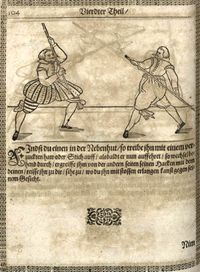 104 Vierdter Theil/
FIndst du einen in der Nebenhut/ so treibe jhn mit einem ver-
zuckten haw oder Stich auff/ alsbald er nun auffehrt/ so wechsel
hend durch/ ergreiffe jhn von der andern seiten seinen Hacken mit dem
deinen/ reisse jhn zu dir/ sihe zu/ wo du jhn mit stossen erlangen kanst gegen sei-
nem Gesicht.
Nim